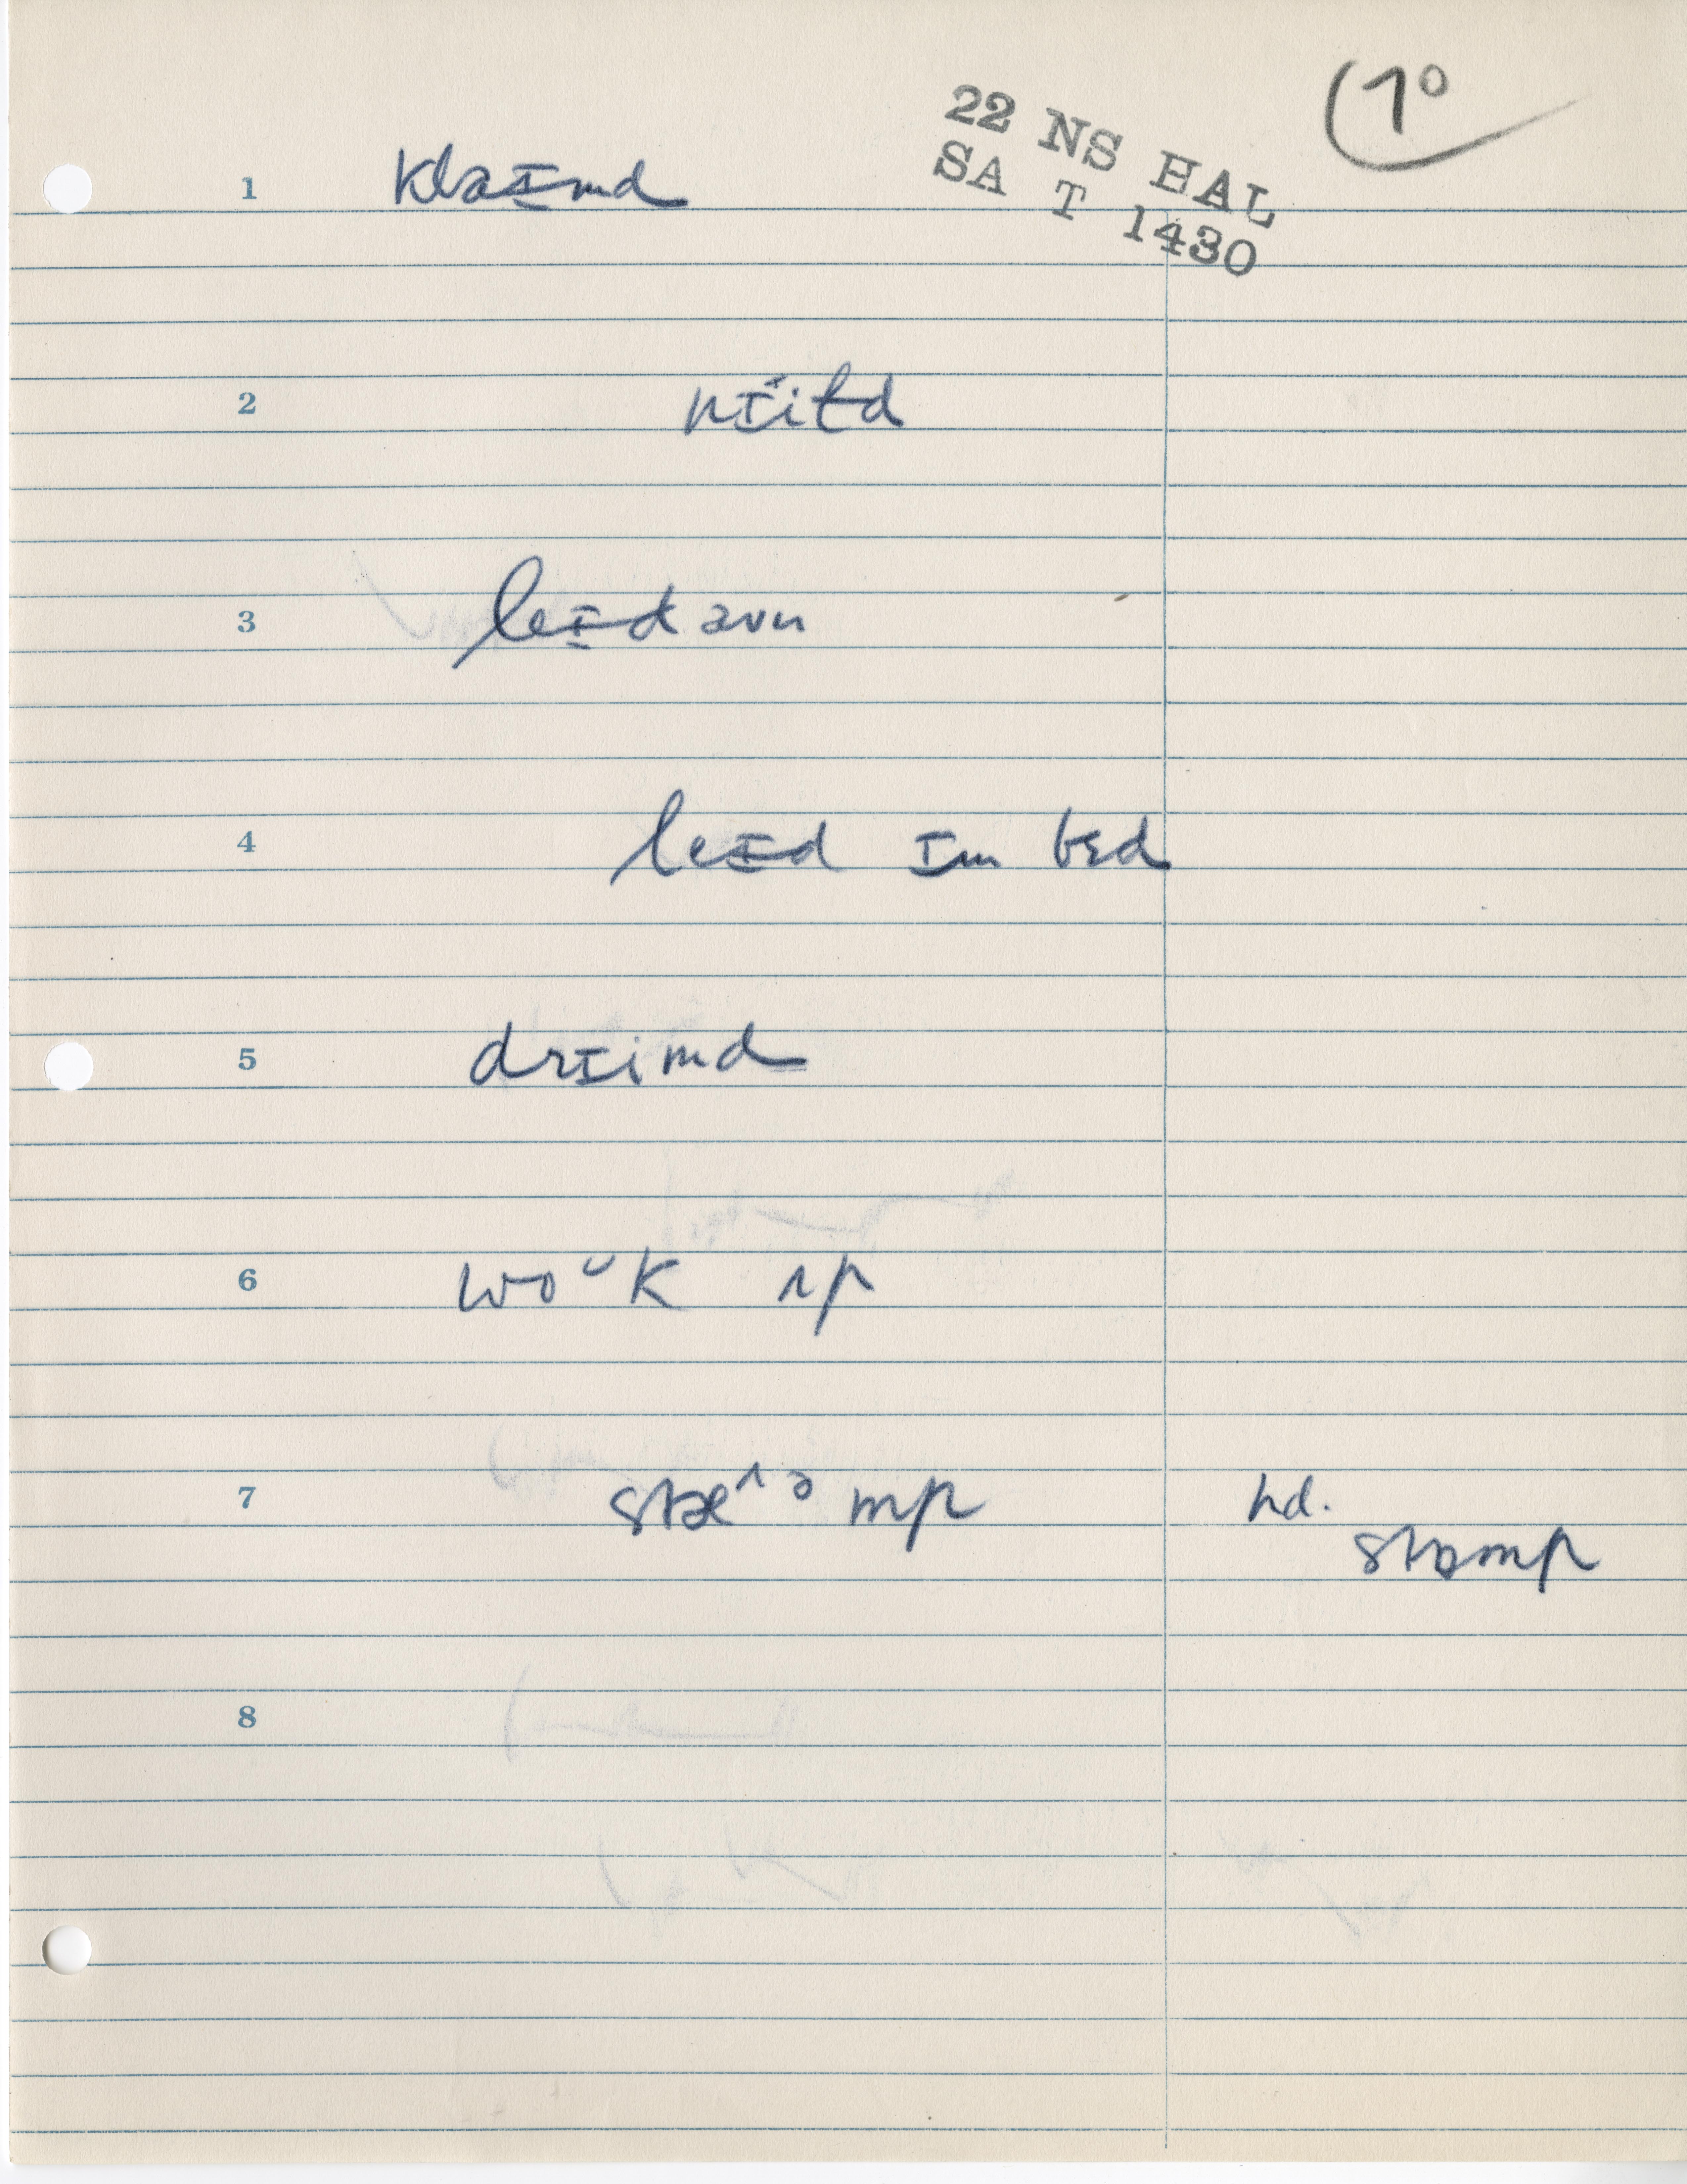 (1°
22 NS HAL
SA T 1430
1 klaɪmd
2 nɪitd
3 leɪd aʊn
4 leɪd ɪn bɛd
5 drɪimd
6 woᵘk ʌp
7 stæ^ə mp hd.
stɒmp
8